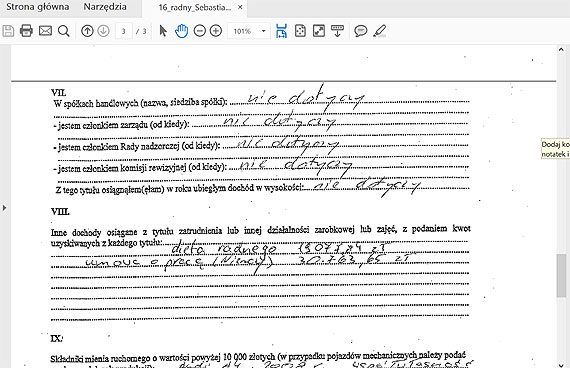 Strona główna Narzędzia 16_radny_Sebastia... ×
3 / 3 101%
VII.
W spółkach handlowych (nazwa, siedziba spółki): nie dotyczy
- jestem członkiem zarządu (od kiedy): nie dotyczy
- jestem członkiem Rady nadzorczej (od kiedy): nie dotyczy
- jestem członkiem komisji rewizyjnej (od kiedy): nie dotyczy
Z tego tytułu osiągnąłem(ęłam) w roku ubiegłym dochód w wysokości: nie dotyczy
Dodaj ko
notatek i
VIII.
Inne dochody osiągane z tytułu zatrudnienia lub innej działalności zarobkowej lub zajęć, z podaniem kwot
uzyskiwanych z każdego tytułu: dieta radnego zł
umowa o pracę (Niemcy) 30.763,65 zł
IX.
Składniki mienia ruchomego o wartości powyżej 10 000 złotych (w przypadku pojazdów mechanicznych należy podać